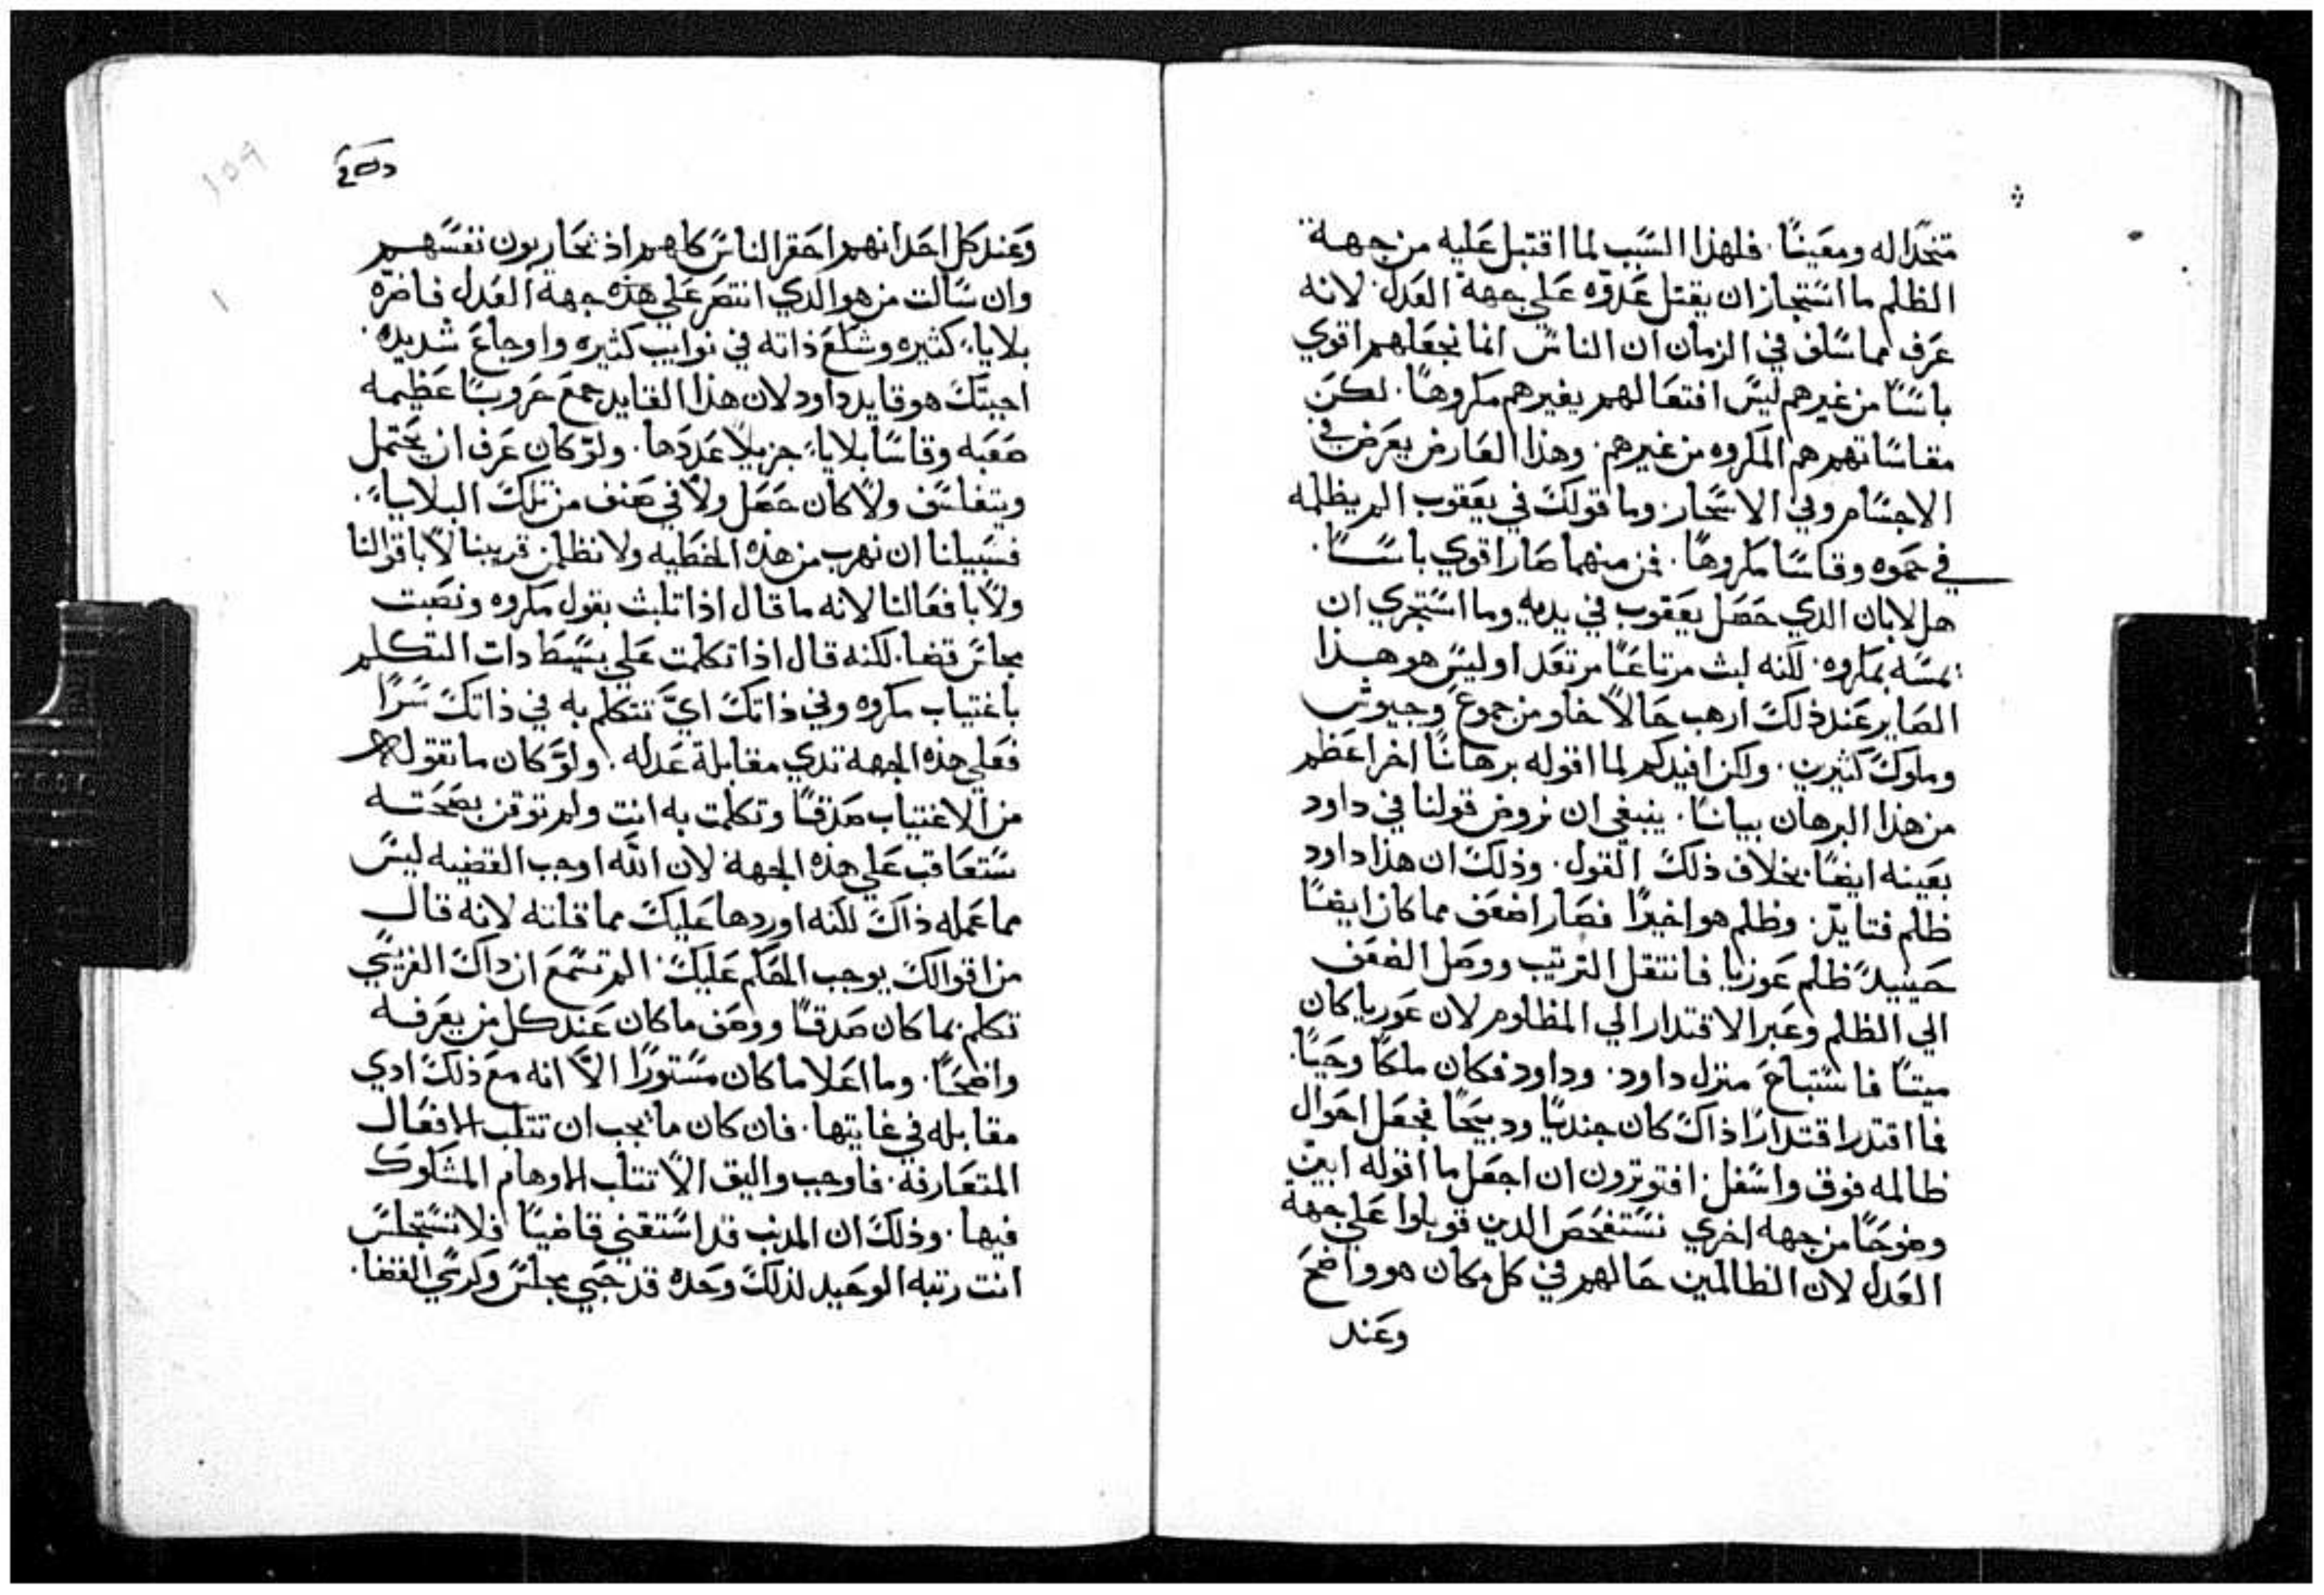 متخذًا له ومعينًا. فلهذا السَبب لما اقتبل عَليه من جهة
الظلم ما استجاز ان يقتل عَدوّه عَلي جهة العَدل. لانه
عَرف مما سَلف في الزمان ان الناسَ انما تجعَلهم اقوي
باسًا من غيرهم ليسَ افتعَالهم بغيرهم مكروهًا. لكن
مقاسَاتهم هم المكروه من غيرهم. وهذا العَارض يعَرض في
الاجسَام وفي الاشجار. وما قولكَ في يعَقوب الم يظلمه
في حَموه وقاسَا مكروهًا. فمن منهما صَار اقوي باسًا.
هل لابان الذي حَصَل يعَقوب في يديه وما استجري ان
يمسَه بمكروه. لكنه لبث مرتاعَا مرتعَد اوليسَ هو هذا
الصَاير عَند ذلكَ ارهب حَالاً خلو من جموعَ وجيوش
وملوكَ كثيرين. ولكن افيدكم لما اقوله برهانًا اخر اعَظم
من هذا البرهان بيانًا. ينبغي ان نروض قولنا في داود
بعَينه ايضًا بخلاف ذلكَ القول. وذلكَ ان هذا داود
ظلم فتايّد. وظلم هو اخيرًا فصَار اضعَف مما كان ايضًا
حَينيدً ظلم عَوريا فانتقل الترتيب ووصَل الضعَف
الي الظلم وعَبر الاقتدار الي المظلوم لان عَوريا كان
ميتًا فاستباحَ منزل داود. وداود فكان ملكًا وحَيًا.
فما اقتدر اقتدارًا ذاكَ كان جنديًا ودبيحًا فجعَل احَوال
ظالمه فوق واسَفل. افتوثرون ان اجعَل ما اقوله ابينَ
وضوحًا من جهه اخري نستفحَص الدين قوبلوا عَلي جهة
العَدل لان الظالمين حَالهم في كل مكان هو واضحَ
وعَند
وعَند كل احَد انهم احَقر الناسَ كلهم اذ يحَاربون نفسَهم
وان سَالت من هو الدي انتصَر عَلي هذه جهة العَدل فاضرّه
بلايا كثيره وشلعَ ذاته في نوايب كثيره واوجاعَ شديده.
اجبتكَ هو قايد داود لان هذا القايد جمعَ حَروبًا عَظيمه
صَعَبه وقاسَا بلايا جزيلاً عَددَها. ولوّ كان عَرف ان يحَتمل
ويتفلسَف ولاً كان حَصَل ولاً في صَنف من تلكَ البلايا.
فسَبيلنا ان نهرب من هذه الخطيه ولا نظلمن قريبنا لاً باقوالنا
ولاً بافعَالنا لانه ما قال اذا تلبت بقول مكروه ونصَبت
مجلسَ قضا. لكنه قال اذا تكلمت عَلي بسَيط دات التكلم
باغتياب مكروه وفي ذاتكَ ايَّ تتكلم به في ذاتكَ سَرًا
فعَلي هذه الجهه تدي مقابلة عَدله. ولوَّ كان ما تقوله
من الاغتياب صَدقًا وتكلمت به انت ولم توقن بصَحَته
سَتعَاقب عَلي هذه الجهة لان الله اوجب القضيه ليسَ
مما عَمله ذاكَ لكنه اوردها عَليكَ مما قلته لانه قال
من اقوالكَ يوجب الحَكم عَليكَ. الم تسمعَ ان داكَ الفريسَي
تكلم بما كان صَدقًا ووصَف ما كان عَند كل من يعَرفه
واضحًا. وما اعَلا ما كان مسَتورًا الاَّ انه معَ ذلكَ ادي
مقابله في غايتها. فان كان ما يجب ان تتلب الافعَال
المتعَارفة. فاوجب واليق الاَّ تتلب الاوهام المشكوكَ
فيها. وذلكَ ان المدنب قد اسَتقني قاضيًا فلا تستجلسَ
انت رتبه الوحَيد لذلكَ وحَده قد حَبي مجلسَ وكرسَي القضا.